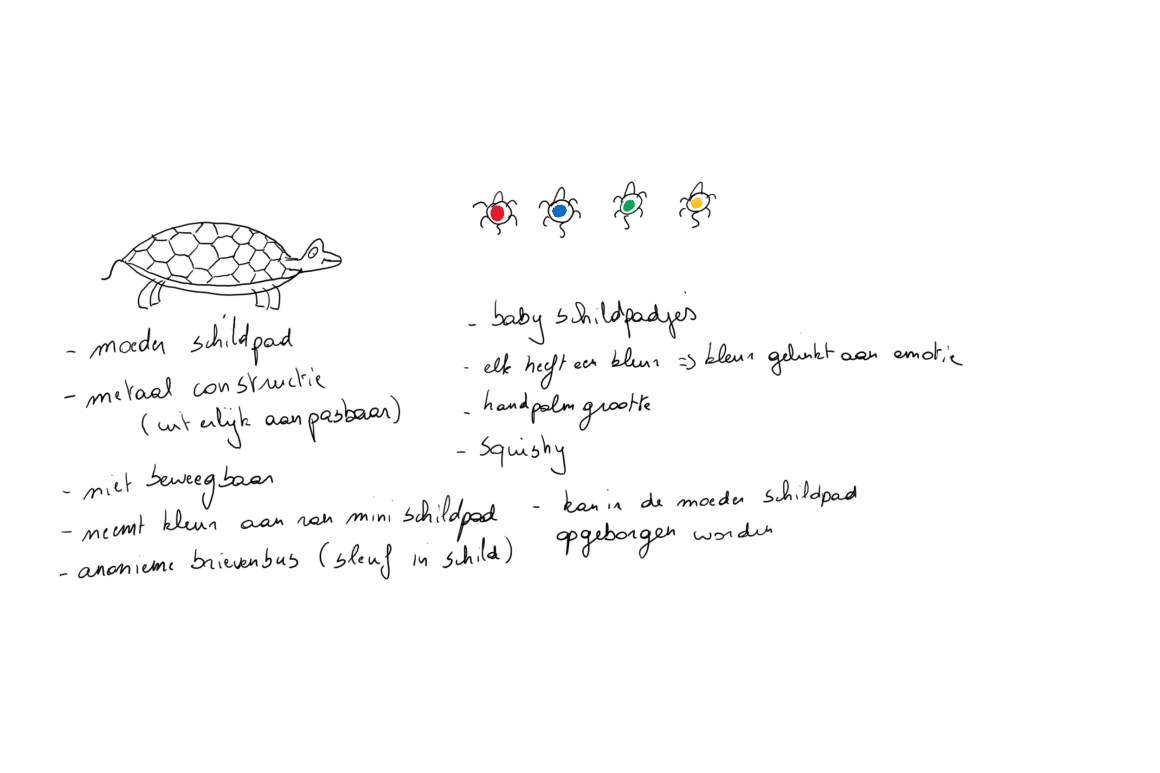 - moeder schildpad
- metaal constructie
(uiterlijk aanpasbaar)
- niet beweegbaar
- neemt kleur aan van mini schildpad
- anonieme brievenbus (sleuf in schild)
- baby schildpadjes
- elk heeft een kleur => kleur gelinkt aan emotie
- handpalm grootte
- squishy
- kan in de moeder schildpad
opgeborgen worden